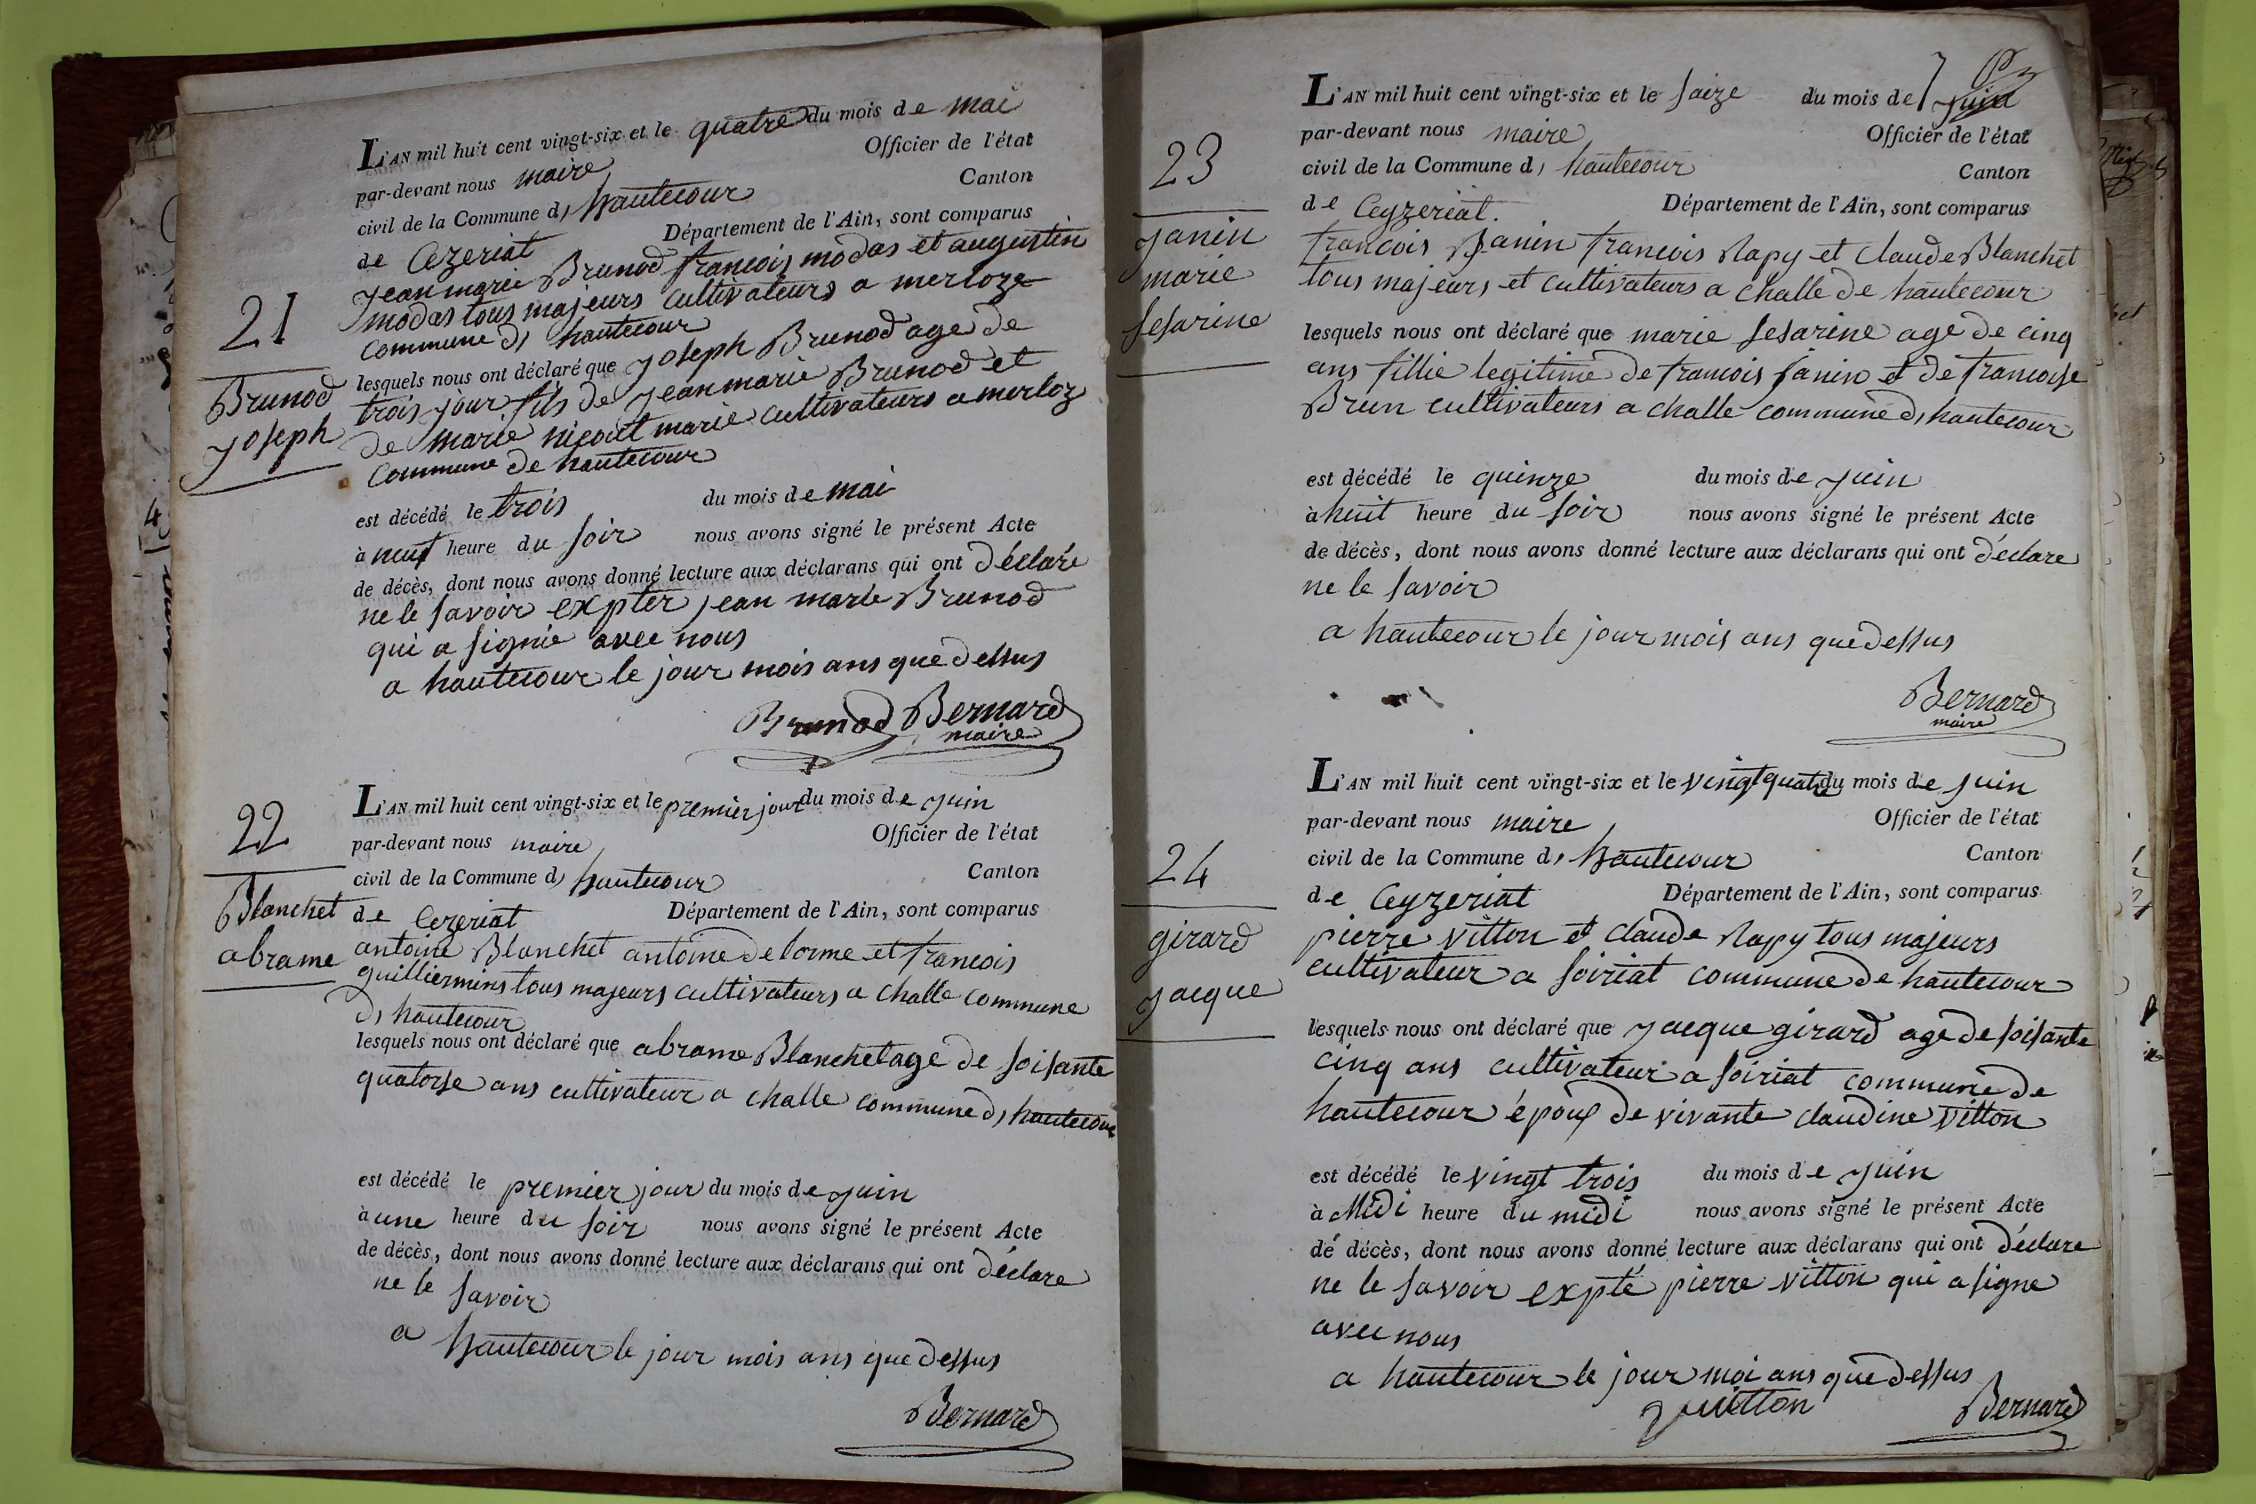 L'AN mil huit cent vingt-six et le quatre du mois de mai
par-devant nous maire Officier de l'état
civil de la Commune d, hautecour Canton
de Cezeriat Département de l'Ain, sont comparus
jean marie Brunod francois modas et augustin
modas tous majeurs cultivateurs a merloze
commune d, hautecour
21
Brunod
joseph
lesquels nous ont déclaré que joseph Brunod age de
trois jour fils de jean marie Brunod et
de marie nicout marie cultivateurs a merloz
commune de hautecour
est décédé le trois du mois de mai
à neuf heure du soir nous avons signé le présent Acte
de décès, dont nous avons donné lecture aux déclarans qui ont déclaré
ne le savoir expter jean marie Brunod
qui a signie avec nous
a hautecour le jour mois ans que dessus
Brunod Bernard
maire
L'AN mil huit cent vingt-six et le premier jour du mois de juin
par-devant nous maire Officier de l'état
civil de la Commune d, hautecour Canton
de Cezeriat Département de l'Ain, sont comparus
22
Blanchet
abrame
antoine Blanchet antoine delorme et francois
guilliermins tous majeurs cultivateurs a challe commune
d, hautecour
lesquels nous ont déclaré que abrame Blanchet age de soisante
quatorse ans cultivateur a challe commune d, hautecour
est décédé le premier jour du mois de juin
à une heure du soir nous avons signé le présent Acte
de décès, dont nous avons donné lecture aux déclarans qui ont déclare
ne le savoir
a hautecour le jour mois ans que dessus
Bernard
L'AN mil huit cent vingt-six et le saize du mois de juin
par-devant nous maire Officier de l'état
civil de la Commune d, hautecour Canton
de Ceyzeriat. Département de l'Ain, sont comparus
23
janin
marie
sesarine
francois Janin francois Rapy et Claude Blanchet
tous majeurs et cultivateurs a challe de hautecour
lesquels nous ont déclaré que marie sesarine age de cinq
ans fillie legitime de francois janin et de francoise
Brun cultivateurs a challe commune d, hautecour
est décédé le quinze du mois de juin
à huit heure du soir nous avons signé le présent Acte
de décès, dont nous avons donné lecture aux déclarans qui ont déclare
ne le savoir
a hautecour le jour mois ans que dessus
Bernard
maire
L'AN mil huit cent vingt-six et le vingt quatre du mois de juin
par-devant nous maire Officier de l'état
civil de la Commune d, hautecour Canton
de Ceyzeriat Département de l'Ain, sont comparus
24
girard
jacque
pierre vitton et claude Rapy tous majeurs
cultivateur a soiriat commune de hautecour
lesquels nous ont déclaré que jacque girard age de soisante
cinq ans cultivateur a soiriat commune de
hautecour époux de vivante claudine vitton
est décédé le vingt trois du mois de juin
à Midi heure du midi nous avons signé le présent Acte
dé décès, dont nous avons donné lecture aux déclarans qui ont déclare
ne le savoir expté pierre vitton qui a signe
avec nous
a hautecour le jour moi ans que dessus
vitton Bernard